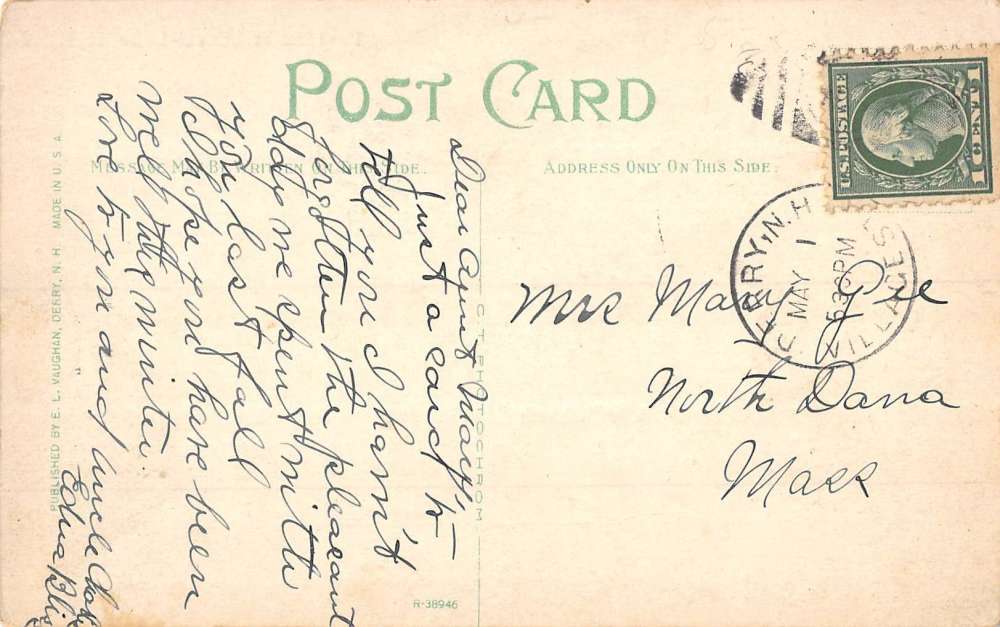 POST CARD
MESSAGE MAY BE WRITTEN ON THIS SIDE.
ADDRESS ONLY ON THIS SIDE
U.S. POSTAGE
1 CENT 1
DERRY, N.H.
MAY 1
530PM
VILLAGE S
Dear Aunt Mary,
Just a card to
tell you I havn't
forgotten the pleasant
day we spent with
you last fall
I hope you have been
well the winter.
Love to you and Uncle
Edna
Mrs Mary Gee
North Dana
Mass
PUBLISHED BY E. L. VAUGHAN, DERRY, N. H. MADE IN U. S. A.
C.T. PHOTOCHROM
R-38946